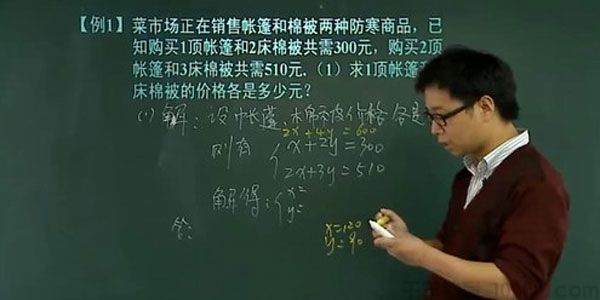 【例1】菜市场正在销售帐篷和棉被两种防寒商品，已
知购买1顶帐篷和2床棉被共需300元，购买2顶
帐篷和3床棉被共需510元.（1）求1顶帐篷
床棉被的价格各是多少元？
(1) 解：设帐篷、棉被价格各是
2x+4y=600
则有 { x+2y=300
2x+3y=510
解得：{ x=
y=
答：
x=120
y=90